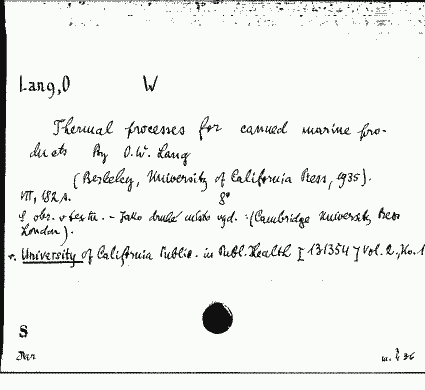 Lang, O W
Thermal processes for canned marine pro-
ducts By O.W. Lang
(Berkeley, University of California Press, 1935).
VII, 182 s. 8°
S obr. v textu. - Jako druhé místo vyd.: (Cambridge University Press
London).
r. University of California Public. in Publ. Health [131354] Vol. 2, No. 1
S
Dar 36